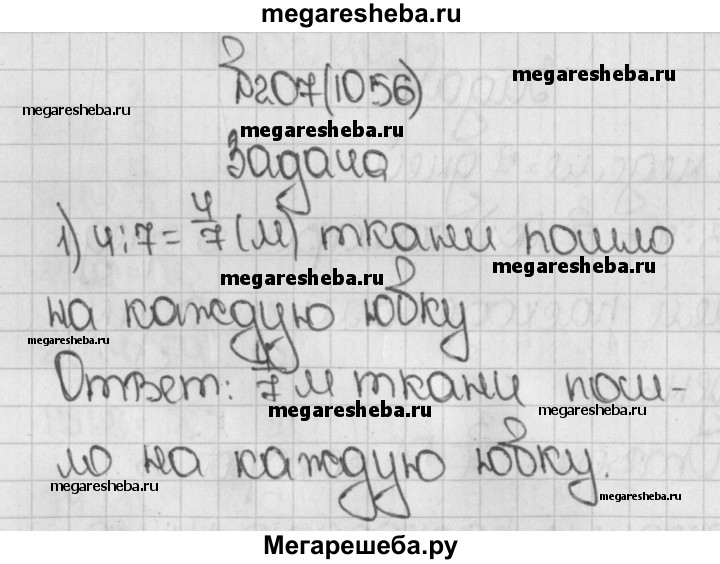 megaresheba.ru
№207(1056)
megaresheba.ru
megaresheba.ru
megaresheba.ru
Задача
1) 4:7=4/7 (м) ткани пошло
megaresheba.ru
megaresheba.ru
на каждую юбку
megaresheba.ru
Ответ: 4/7 м ткани пош-
megaresheba.ru
megaresheba.ru
ло на каждую юбку.
megaresheba.ru
megaresheba.ru
Мегарешеба.ру